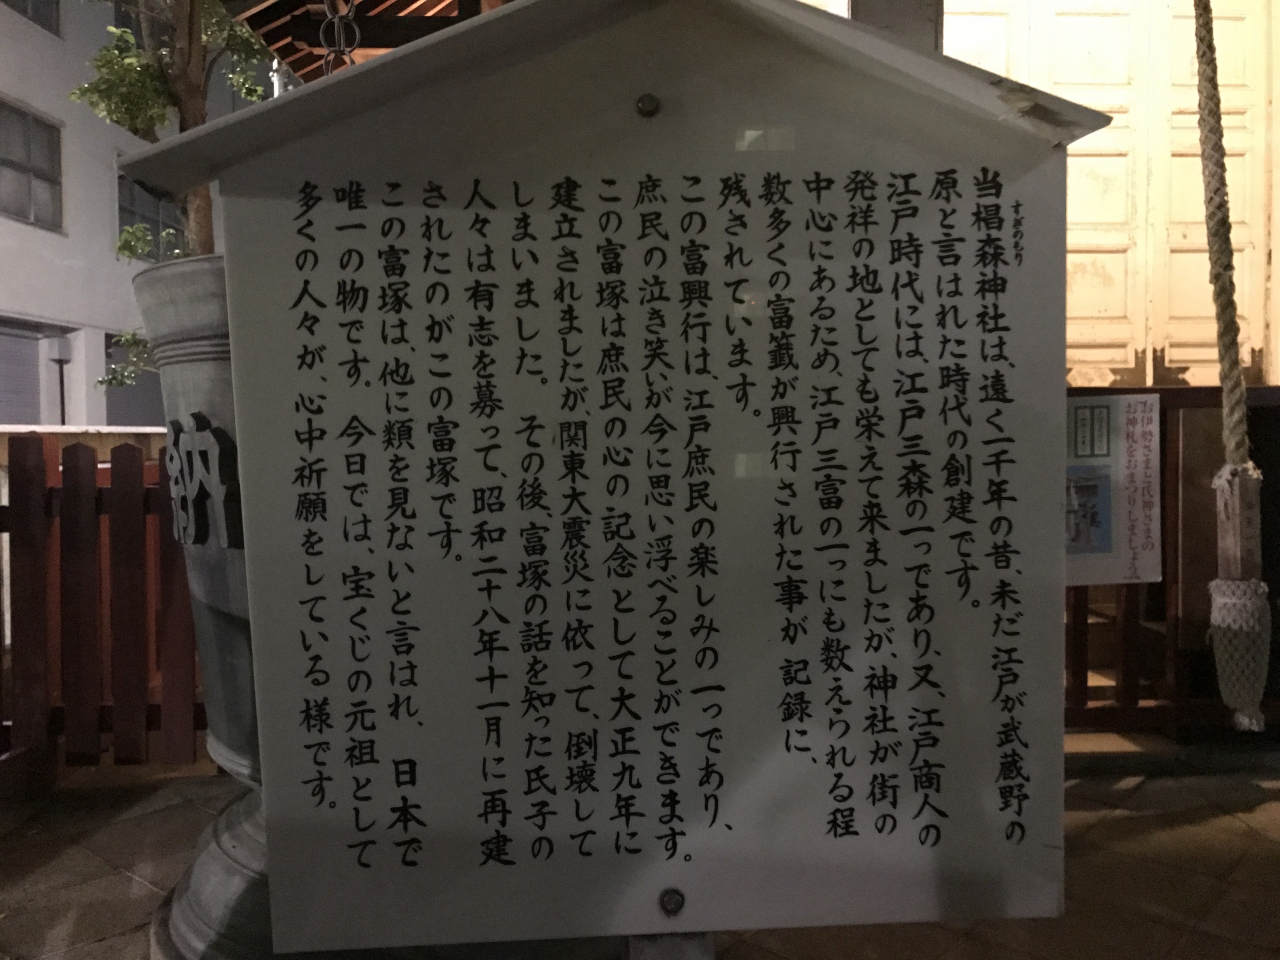 当椙森神社は、遠く一千年の昔、未だ江戸が武蔵野の
すぎのもり
原と言はれた時代の創建です。
江戸時代には、江戸三森の一つであり、又、江戸商人の
発祥の地としても栄えて来ましたが、神社が街の
中心にあるため、江戸三富の一つにも数えられる程
数多くの富籤が興行された事が記録に、
残されています。
この富興行は、江戸庶民の楽しみの一つであり、
庶民の泣き笑いが今に思い浮べることができます。
この富塚は庶民の心の記念として大正九年に
建立されましたが、関東大震災に依って、倒壊して
しまいました。 その後、富塚の話を知った氏子の
人々は有志を募って、昭和二十八年十一月に再建
されたのがこの富塚です。
この富塚は、他に類を見ないと言はれ、 日本で
唯一の物です。 今日では、宝くじの元祖として
多くの人々が、心中祈願をしている様です。
お伊勢さまと氏神さまの
お神札をおまつりしましょう
納